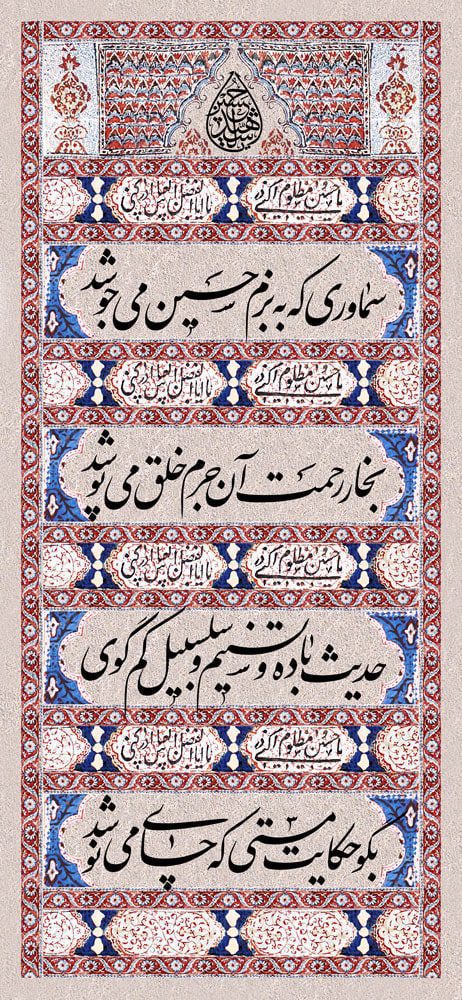 یا حسین شهید
یا حسین مظلوم ادرکنی یا ابا الفضل العباس ادرکنی
سماوری که به بزم حسین می جوشد
یا حسین مظلوم ادرکنی یا ابا الفضل العباس ادرکنی
بخار رحمت آن جرم خلق می پوشد
یا حسین مظلوم ادرکنی یا ابا الفضل العباس ادرکنی
حدیث باده و تسنیم و سلسبیل کم گوی
یا حسین مظلوم ادرکنی یا ابا الفضل العباس ادرکنی
بگو حکایت مستی که چای می نوشد